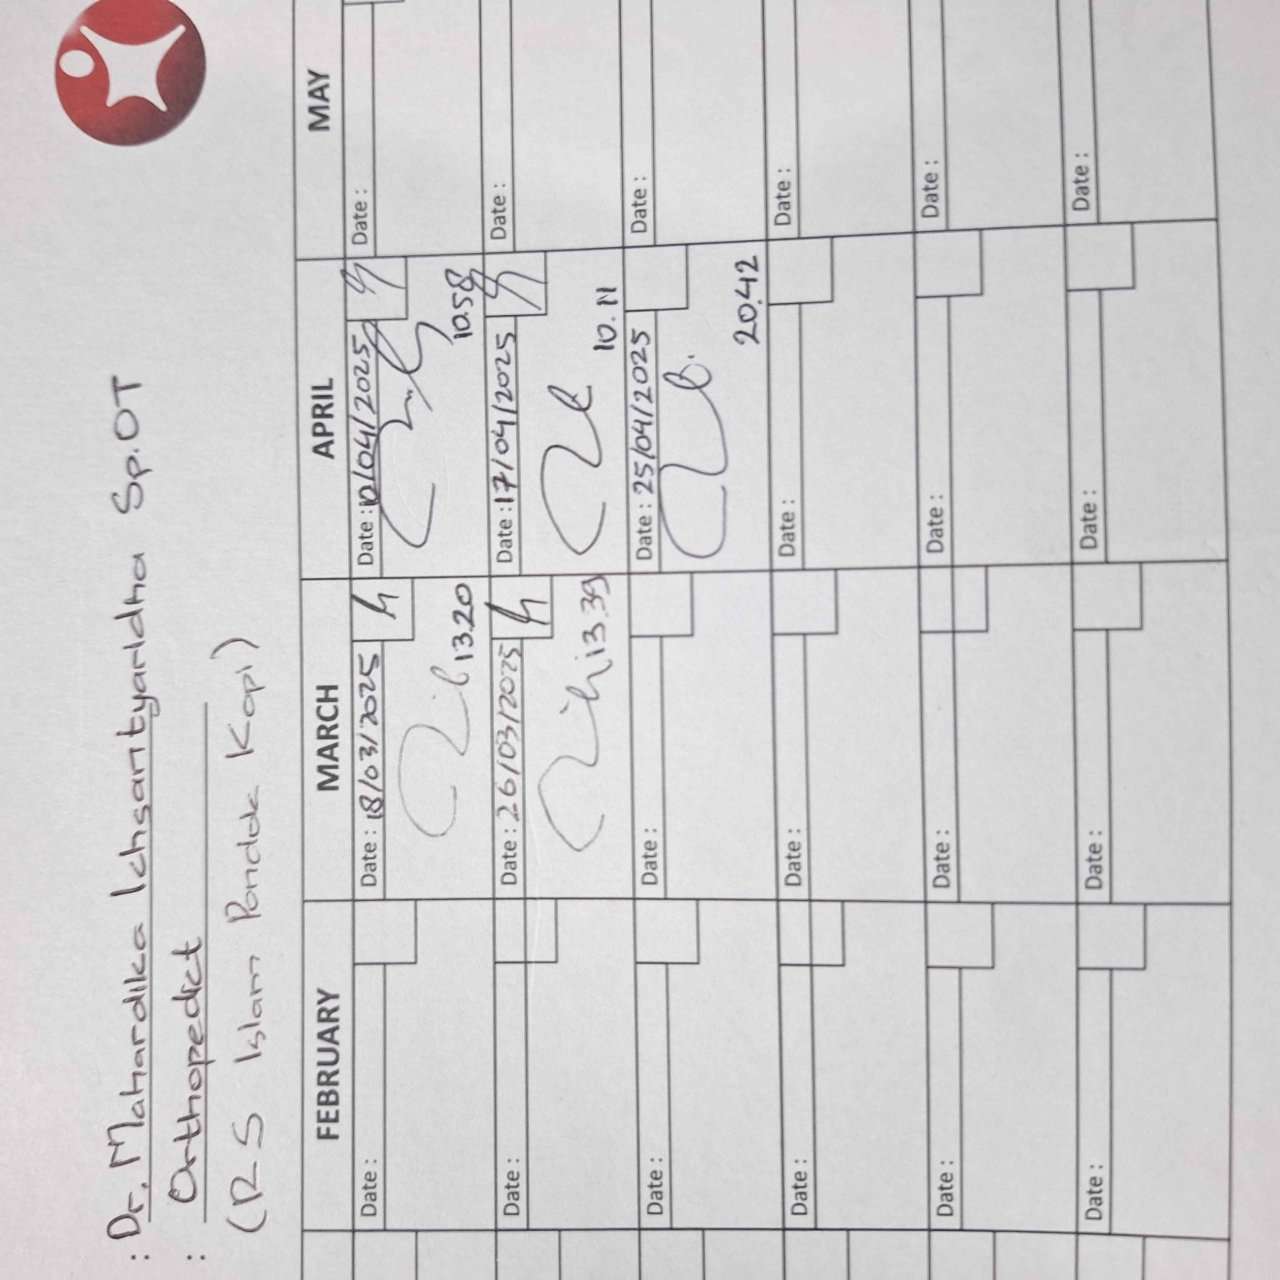 : Dr. Mahardika Ichsantyaridha Sp.OT
: Orthopedict
(RS Islam Pondok Kopi)
FEBRUARY MARCH APRIL MAY
Date : Date : 18/03/2025 Date : 10/04/2025 Date :
13.20 10.58
Date : Date : 26/03/2025 Date : 17/04/2025 Date :
13.39 10.11
Date : Date : Date : 25/04/2025 Date :
20.42
Date : Date : Date : Date :
Date : Date : Date : Date :
Date : Date : Date : Date :